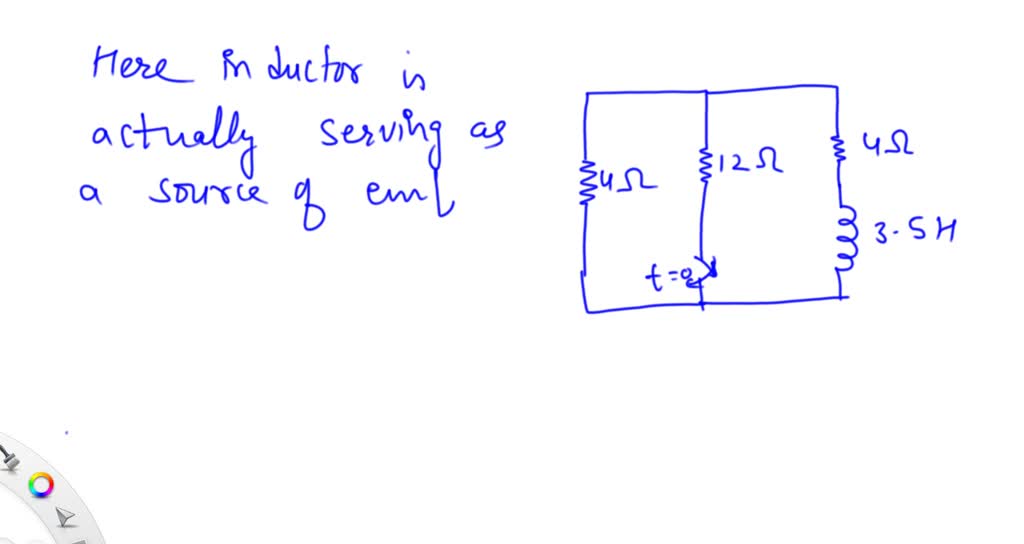 Here inductor is
actually serving as
a source of emf
4Ω
12Ω
4Ω
3.5H
t=0